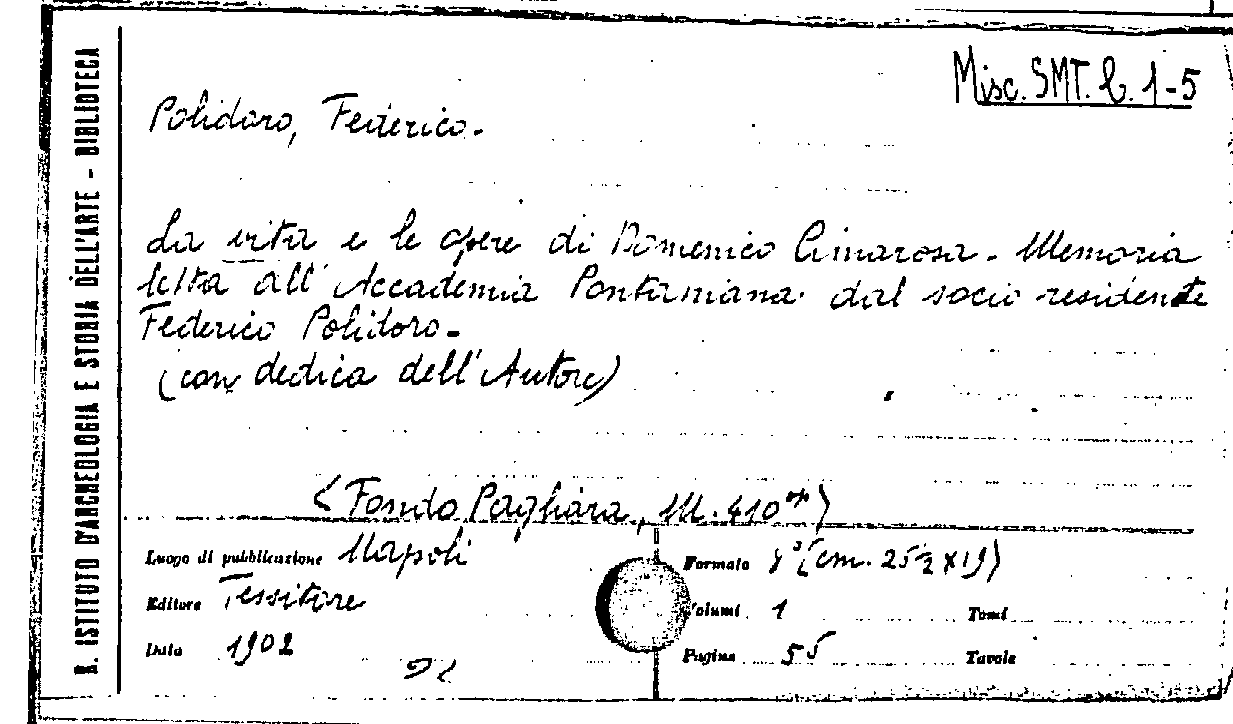 Misc. SMT. b. 1-5
R. ISTITUTO D'ARCHEOLOGIA E STORIA DELL'ARTE - BIBLIOTECA
Polidoro, Federico.
La vita e le opere di Domenico Cimarosa. Memoria
letta all'Accademia Pontaniana dal socio residente
Federico Polidoro.
(con dedica dell'Autore)
<Fondo Pagliara, M. 410>
Luogo di pubblicazione Napoli
Editore Tessitore
Data 1902
Formato 8° (cm. 25½ x 19)
Volumi 1 Tomi
Pagine 55 Tavole